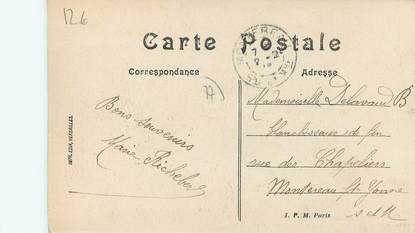 126
Carte Postale
Correspondance
Adresse
Bons souvenirs
Marie Richebert
Mademoiselle Delavaud B
blanchisseuse de fin
rue des Chapeliers
Montereau St Yonne
S et M
IMPR. EDIA, VERSAILLES.
I. P. M. Paris